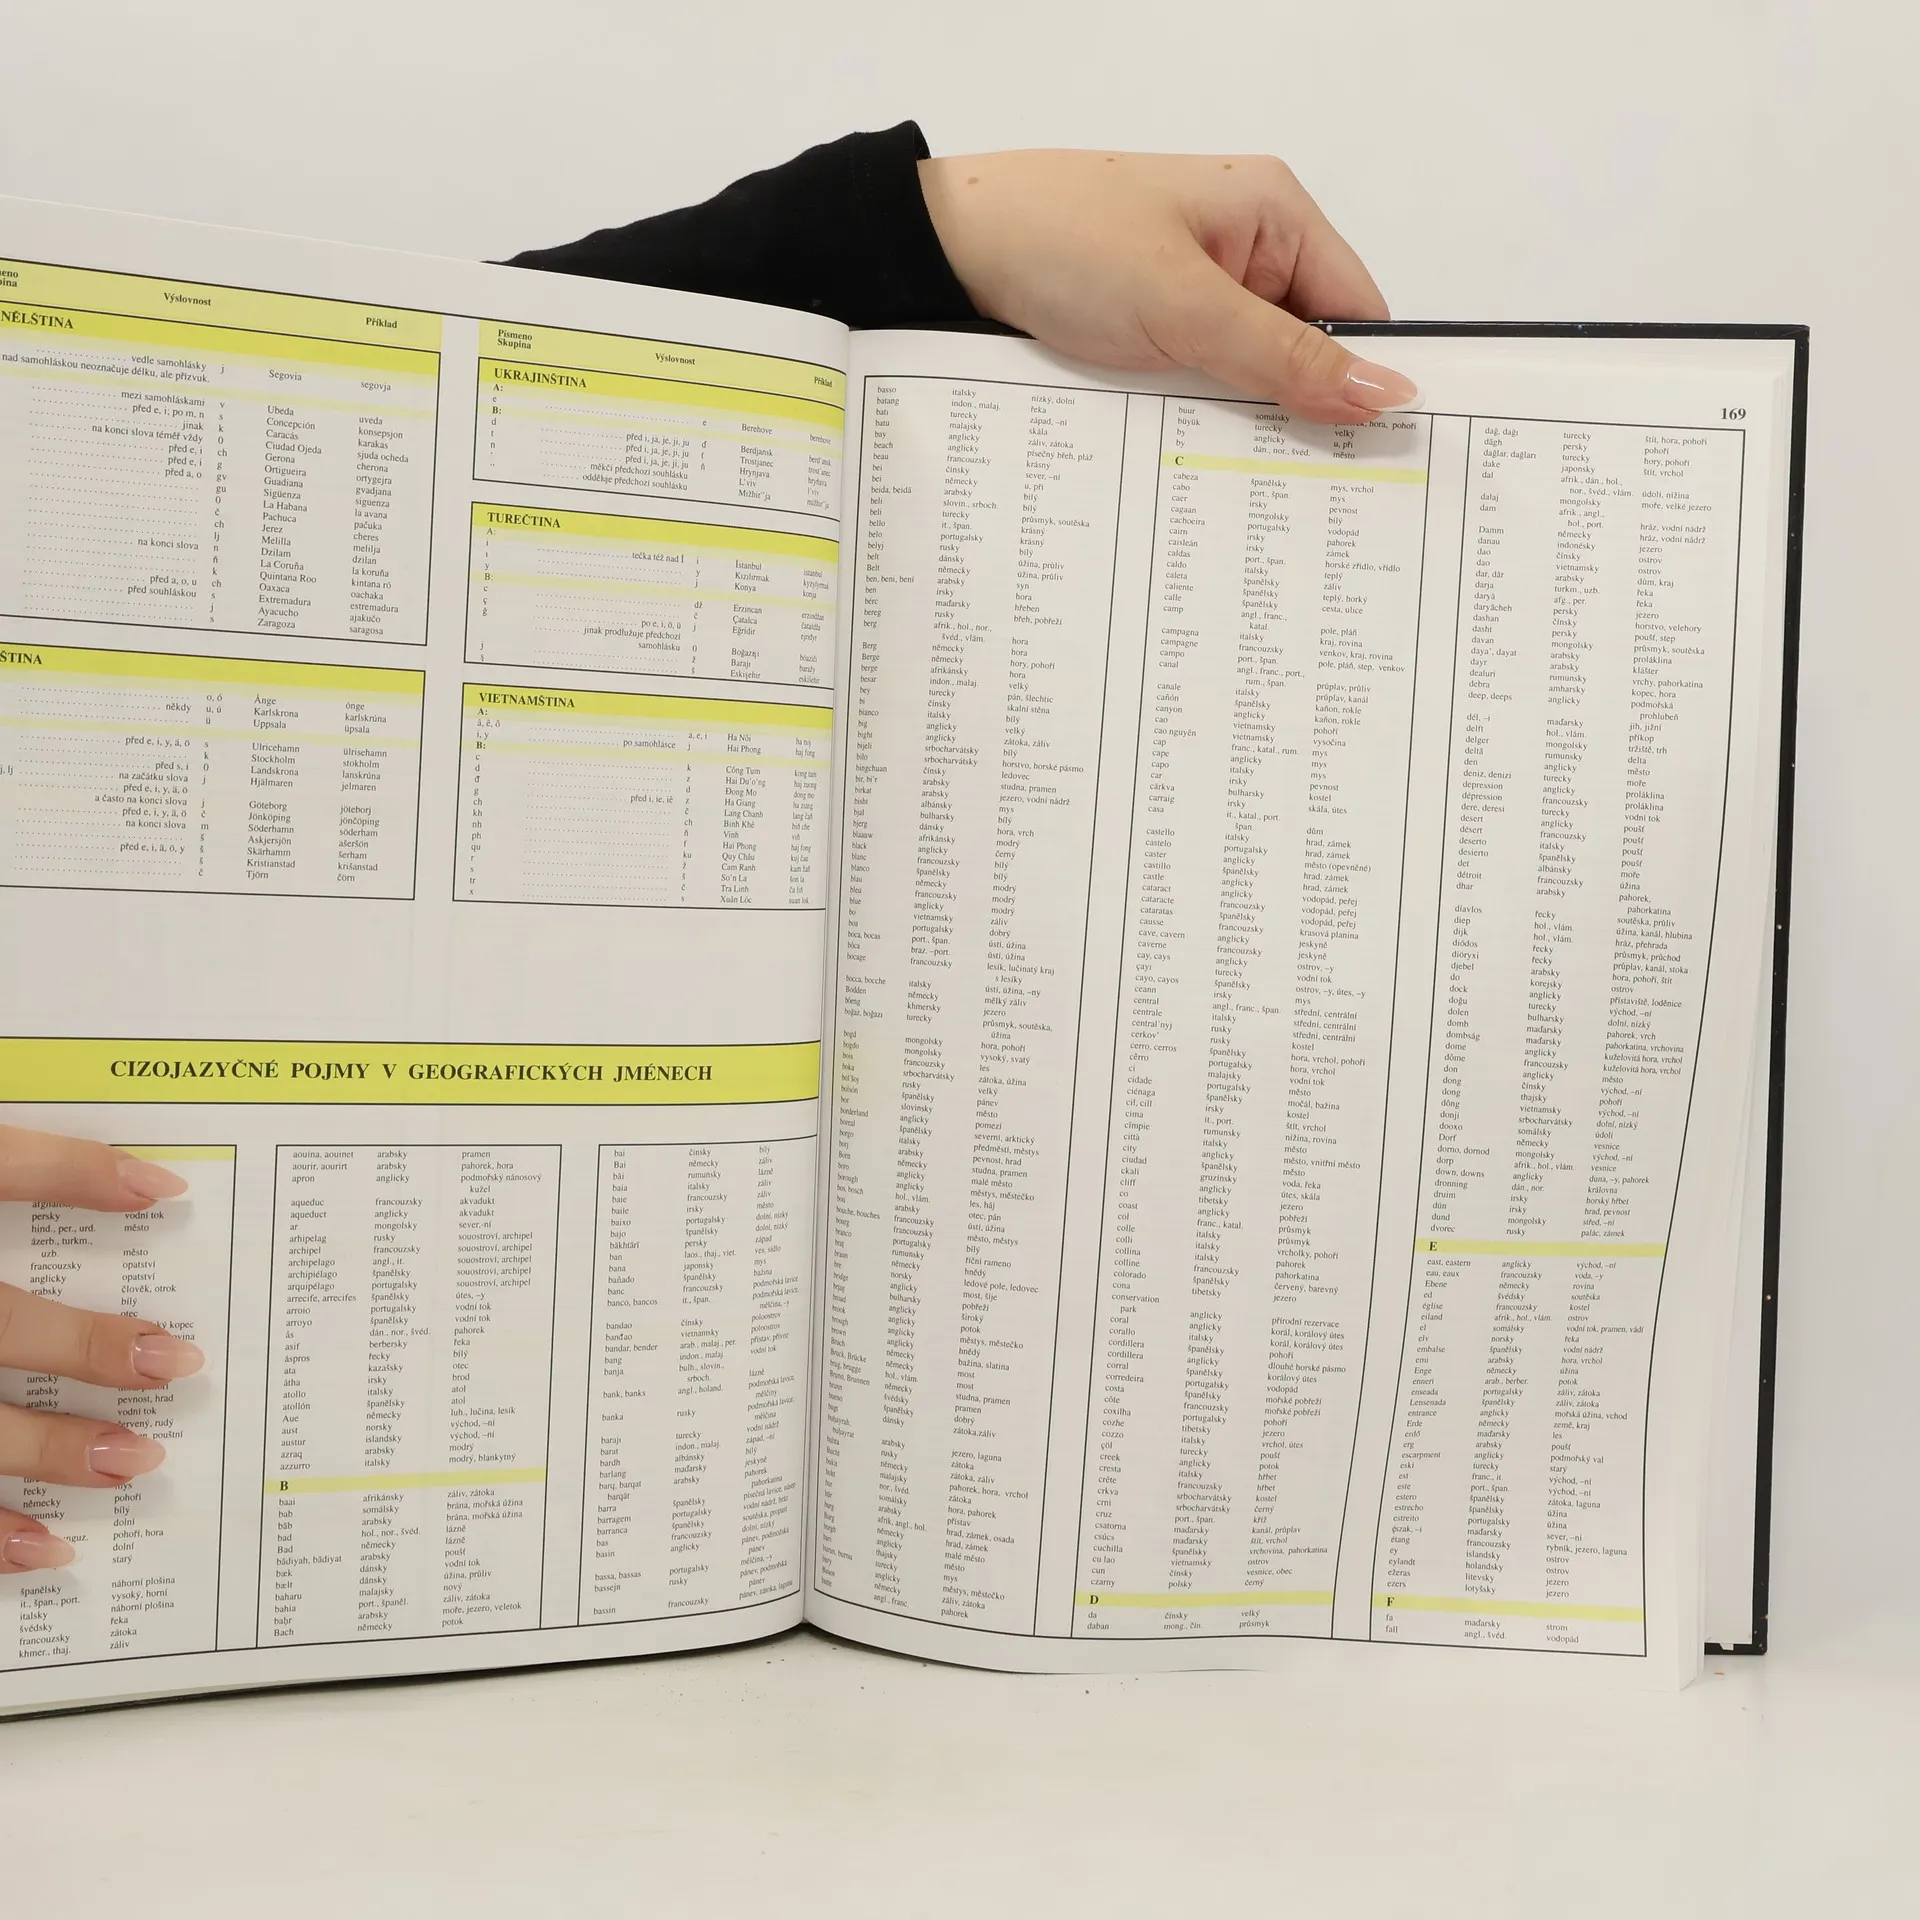 Výslovnost
Příklad
NĚLŠTINA
vedle samohlásky j Segovia segovja
nad samohláskou neoznačuje délku, ale přízvuk.
mezi samohláskami v Ubeda uveda
před e, i; po m, n s Concepción konsepsjon
jinak k Caracás karakas
na konci slova téměř vždy 0 Ciudad Ojeda sjuda ocheda
před e, i ch Gerona cherona
před e, i g Ortigueira ortygejra
před a, o gv Guadiana gvadjana
gu Sigüenza siguenza
0 La Habana la avana
č Pachuca pačuka
ch Jerez cheres
lj Melilla melilja
na konci slova n Dzilam dzilan
ň La Coruña la koruňa
k Quintana Roo kintana ró
před a, o, u ch Oaxaca oachaka
před souhláskou s Extremadura estremadura
j Ayacucho ajakučo
s Zaragoza saragosa
ŠTINA
o, ó Ånge ónge
někdy u, ú Karlskrona karlskrúna
ü Uppsala üpsala
před e, i, y, ä, ö s Ulricehamn ülrisehamn
k Stockholm stokholm
před s, i 0 Landskrona lanskrúna
na začátku slova j Hjälmaren jelmaren
před e, i, y, ä, ö
a často na konci slova j Göteborg jöteborj
před e, i, y, ä, ö č Jönköping jönčöping
na konci slova m Söderhamn söderham
š Askjersjön ašeršön
před e, i, ä, ö, y š Skärhamm šerham
š Kristianstad krišanstad
č Tjörn čörn
Písmeno
Skupina
Výslovnost
Příklad
UKRAJINŠTINA
A:
e e Berehove berehove
B:
d před i, ja, je, ji, ju ď Berdjansk
t před i, ja, je, ji, ju ť Trostjanec
n před i, ja, je, ji, ju ň Hrynjava hryňava
' měkčí předchozí souhlásku L'viv
'' odděluje předchozí souhlásku Mižhir''ja
TUREČTINA
A:
i tečka též nad İ i İstanbul istanbul
ı y Kızılırmak kyzylyrmak
y j Konya konja
B:
c dž Erzincan erzindžan
ç č Çatalca čataldža
ğ po e, i, ö, ü j Eğridir ejridyr
jinak prodlužuje předchozí
samohlásku 0 Boğazıi
j ž Barajı baražy
ş š Eskişehir eskišehir
VIETNAMŠTINA
A:
â, ê, ô a, e, o Ha Nôi ha noj
i, y po samohlásce j Hai Phong haj fong
B:
c k Công Tum kong tum
d z Hai Du'o'ng
đ d Đong Mo dong mo
g před i, ie, iê z Ha Giang ha ziang
ch č Lang Chanh
kh ch Binh Khê
nh ň Vinh viň
ph f Hai Phong haj fong
qu ku Quy Châu kuj čau
r ž Cam Ranh kam žaň
s š So'n La šon la
tr č Tra Linh ča liň
x s Xuân Lôc suan lok
CIZOJAZYČNÉ POJMY V GEOGRAFICKÝCH JMÉNECH
persky vodní tok
hind., per., urd. město
ázerb., turkm.,
uzb. město
francouzsky opatství
anglicky opatství
arabsky člověk, otrok
bílý
otec
turecky
arabsky pevnost, hrad
arabsky vodní tok
červený, rudý
řecky mys
německy pohoří
bílý
dolní
pohoří, hora
dolní
starý
španělsky náhorní plošina
it., špan., port. vysoký, horní
italsky náhorní plošina
švédsky řeka
francouzsky zátoka
khmer., thaj. záliv
aouina, aouinet arabsky pramen
aourir, aourirt arabsky pahorek, hora
apron anglicky podmořský nánosový
kužel
aqueduc francouzsky akvadukt
aqueduct anglicky akvadukt
ar mongolsky sever,-ní
arhipelag rusky souostroví, archipel
archipel francouzsky souostroví, archipel
archipelago angl., it. souostroví, archipel
archipiélago španělsky souostroví, archipel
arquipélago portugalsky souostroví, archipel
arrecife, arrecifes španělsky útes, –y
arroio portugalsky vodní tok
arroyo španělsky vodní tok
ås dán., nor., švéd. pahorek
asif berbersky řeka
áspros řecky bílý
ata kazašsky otec
átha irsky brod
atollo italsky atol
atollón španělsky atol
Aue německy luh., lučina, lesík
aust norsky východ, –ní
austur islandsky východ, –ní
azraq arabsky modrý
azzurro italsky modrý, blankytný
B
baai afrikánsky záliv, zátoka
bab somálsky brána, mořská úžina
báb arabsky brána, mořská úžina
bad hol., nor., švéd. lázně
Bad německy lázně
bādiyah, bādiyat arabsky poušť
bæk dánsky vodní tok
bælt dánsky úžina, průliv
baharu malajsky nový
bahia port., španěl. záliv, zátoka
baḥr arabsky moře, jezero, veletok
Bach německy potok
bai čínsky bílý
Bai německy záliv
băi rumunsky lázně
baia italsky záliv
baie francouzsky záliv
baile irsky město
baixo portugalsky dolní, nízký
bajo španělsky dolní, nízký
bākhtārī persky západ
ban laos., thaj., viet. ves, sídlo
bana japonsky mys
bañado španělsky bažina
banc francouzsky podmořská lavice
banco, bancos it., špan. podmořská lavice,
mělčina, –y
bandao čínsky poloostrov
banđao vietnamsky poloostrov
bandar, bender arab., malaj., per. přístav, přívoz
bang indon., malaj. vodní tok
banja bulh., slovin.,
srboch. lázně
bank, banks angl., holand. podmořská lavice,
mělčiny
banka rusky podmořská lavice,
mělčina
baraji turecky vodní nádrž
barat indon., malaj. západ, –ní
bardh albánsky bílý
barlang maďarsky jeskyně
barq, barqat arabsky pahorek
barqāt pahorkatina
barra španělsky
barragem portugalsky vodní nádrž, hráz
barranca španělsky
bas francouzsky dolní, nízký
basin anglicky pánev, podmořská
pánev
bassa, bassas portugalsky mělčina, –y
bassejn rusky pánev, podmořská
pánev
bassin francouzsky pánev, zátoka, laguna
169
basso italsky nízký, dolní
batang indon., malaj. řeka
bati turecky západ, –ní
batu malajsky skála
bay anglicky záliv, zátoka
beach anglicky písečný břeh, pláž
beau francouzsky krásný
bei čínsky sever, –ní
bei německy u, při
beida, beidā arabsky bílý
beli slovin., srboch. bílý
beli turecky průsmyk, soutěska
bello it., špan. krásný
belo portugalsky krásný
belyj rusky bílý
belt dánsky úžina, průliv
Belt německy úžina, průliv
ben, beni, benī arabsky syn
ben irsky hora
bérc maďarsky hřeben
bereg rusky břeh, pobřeží
berg afrik., hol., nor.,
švéd., vlám. hora
Berg německy hora
Berge německy hory, pohoří
berge afrikánsky hora
besar indon., malaj. velký
bey turecky pán, šlechtic
bi čínsky skalní stěna
bianco italsky bílý
big anglicky velký
bight anglicky zátoka, záliv
bijeli srbocharvátsky bílý
bilo srbocharvátsky horstvo, horské pásmo
bingchuan čínsky ledovec
bir, bi'r arabsky studna, pramen
birkat arabsky jezero, vodní nádrž
bisht albánsky mys
bjal bulharsky bílý
bjerg dánsky hora, vrch
blaauw afrikánsky modrý
black anglicky černý
blanc francouzsky bílý
blanco španělsky bílý
blau německy modrý
bleu francouzsky modrý
blue anglicky modrý
bo vietnamsky záliv
boa portugalsky dobrý
boca, bocas port., špan. ústí, úžina
bôca braz. –port. ústí, úžina
bocage francouzsky lesík, lučinatý kraj
s lesíky
bocca, bocche italsky ústí, úžina, –ny
Bodden německy mělký záliv
bœng khmersky jezero
boğaz, boğazı turecky průsmyk, soutěska,
úžina
bogd mongolsky hora, pohoří
bogdo mongolsky vysoký, svatý
bois francouzsky les
boka srbocharvátsky zátoka, úžina
bol'šoj rusky velký
bolsón španělsky pánev
bor slovinsky město
borderland anglicky pomezí
boreal španělsky severní, arktický
borgo italsky předměstí, městys
borj arabsky pevnost, hrad
Born německy studna, pramen
boro anglicky malé město
borough anglicky městys, městečko
bos, bosch hol., vlám. les, háj
bou arabsky otec, pán
bouche, bouches francouzsky ústí, úžina
bourg francouzsky město, městys
branco portugalsky bílý
braţ rumunsky říční rameno
braun německy hnědý
bre norsky ledové pole, ledovec
bridge anglicky most, šíje
brjag bulharsky pobřeží
broad anglicky široký
brook anglicky potok
brough anglicky městys, městečko
brown anglicky hnědý
Bruch německy bažina, slatina
Bruck, Brücke německy most
brug, brugge hol., vlám. most
Brunn, Brunnen německy studna, pramen
brunn švédsky pramen
bueno španělsky dobrý
bugt dánsky zátoka,záliv
buḥayrah,
buḥayrat arabsky jezero, laguna
buhta rusky zátoka
Bucht německy zátoka, záliv
bukit malajsky pahorek, hora, vrchol
bukt nor., švéd. zátoka
bur somálsky hora, pahorek
būr arabsky přístav
burg afrik, angl., hol. hrad, zámek, osada
Burg německy hrad, zámek
burgh anglicky malé město
buri thajsky město
burun, burnu turecky mys
bury anglicky městys, městečko
Busen německy záliv, zátoka
butte angl., franc. pahorek
buur somálsky
büyük turecky velký
by anglicky u, při
by dán., nor., švéd. město
C
cabeza španělsky mys, vrchol
cabo port., špan. mys
caer irsky pevnost
cagaan mongolsky bílý
cachoeira portugalsky vodopád
cairn irsky pahorek
caisleán irsky zámek
caldas port., špan. horské zřídlo, vřídlo
caldo italsky teplý
caleta španělsky záliv
caliente španělsky teplý, horký
calle španělsky cesta, ulice
camp angl., franc.,
katal. pole, pláň
campagna italsky kraj, rovina
campagne francouzsky venkov, kraj, rovina
campo port., špan. pole, pláň, step, venkov
canal angl., franc., port.,
rum., špan. průplav, průliv
canale italsky průplav, kanál
cañón španělsky kaňon, rokle
canyon anglicky kaňon, rokle
cao vietnamsky pohoří
cao nguyên vietnamsky vysočina
cap franc., katal., rum. mys
cape anglicky mys
capo italsky mys
car irsky pevnost
cărkva bulharsky kostel
carraig irsky skála, útes
casa it., katal., port.,
špan. dům
castello italsky hrad, zámek
castelo portugalsky hrad, zámek
caster anglicky město (opevněné)
castillo španělsky hrad, zámek
castle anglicky hrad, zámek
cataract anglicky vodopád, peřej
cataracte francouzsky vodopád, peřej
cataratas španělsky vodopád, peřej
causse francouzsky krasová planina
cave, cavern anglicky jeskyně
caverne francouzsky jeskyně
cay, cays anglicky ostrov, –y
çayı turecky vodní tok
cayo, cayos španělsky ostrov, –y, útes, –y
ceann irsky mys
central angl., franc., špan. střední, centrální
centrale italsky střední, centrální
central'nyj rusky střední, centrální
cerkov' rusky kostel
cerro, cerros španělsky hora, vrchol, pohoří
cêrro portugalsky hora, vrchol
ci malajsky vodní tok
cidade portugalsky město
ciénaga španělsky močál, bažina
cil, cill irsky kostel
cima it., port. štít, vrchol
cîmpie rumunsky nížina, rovina
città italsky město
city anglicky město, vnitřní město
ciudad španělsky město
ckali gruzínsky voda, řeka
cliff anglicky útes, skála
co tibetsky jezero
coast anglicky pobřeží
col franc., katal. průsmyk
colle italsky průsmyk
colli italsky vrcholky, pohoří
collina italsky pahorek
colline francouzsky pahorkatina
colorado španělsky červený, barevný
cona tibetsky jezero
conservation
park anglicky přírodní rezervace
coral anglicky korál, korálový útes
corallo italsky korál, korálový útes
cordillera španělsky pohoří
cordillera anglicky dlouhé horské pásmo
corral španělsky korálový útes
corredeira portugalsky vodopád
costa španělsky mořské pobřeží
côte francouzsky mořské pobřeží
coxilha portugalsky pohoří
cozhe tibetsky jezero
cozzo italsky vrchol, útes
çöl turecky poušť
creek anglicky potok
cresta italsky hřbet
crête francouzsky hřbet
crkva srbocharvátsky kostel
crni srbocharvátsky černý
cruz port., špan. kříž
csatorna maďarsky kanál, průplav
csúcs maďarsky štít, vrchol
cuchilla španělsky vrchovina, pahorkatina
cu lao vietnamsky ostrov
cun čínsky vesnice, obec
czarny polsky černý
D
da čínsky velký
daban mong., čín. průsmyk
dağ, dağı turecky štít, hora, pohoří
dāgh persky pohoří
dağlar, dağları turecky hory, pohoří
dake japonsky štít, vrchol
dal afrik., dán., hol.,
nor., švéd., vlám. údolí, nížina
dalaj mongolsky moře, velké jezero
dam afrik., angl.,
hol., port. hráz, vodní nádrž
Damm německy hráz, vodní nádrž
danau indonésky jezero
dao čínsky ostrov
dao vietnamsky ostrov
dar, dār arabsky dům, kraj
darja turkm., uzb. řeka
daryā afg., per. řeka
daryācheh persky jezero
dashan čínsky horstvo, velehory
dasht persky poušť, step
davan mongolsky průsmyk, soutěska
daya', dayat arabsky proláklina
dayr arabsky klášter
dealuri rumunsky vrchy, pahorkatina
debra amharsky kopec, hora
deep, deeps anglicky podmořská
prohlubeň
dél, –i maďarsky jih, jižní
delft hol., vlám. příkop
delger mongolsky tržiště, trh
deltă rumunsky delta
den anglicky město
deniz, denizi turecky moře
depression anglicky proláklina
dépression francouzsky proláklina
dere, deresi turecky vodní tok
desert anglicky poušť
désert francouzsky poušť
deserto italsky poušť
desierto španělsky poušť
det albánsky moře
détroit francouzsky úžina
dhar arabsky pahorek,
pahorkatina
díavlos řecky soutěska, průliv
diep hol., vlám. úžina, kanál, hlubina
dijk hol., vlám. hráz, přehrada
díódos řecky průsmyk, průchod
dióryxi řecky průplav, kanál, stoka
djebel arabsky hora, pohoří, štít
do korejsky ostrov
dock anglicky přístaviště, loděnice
doğu turecky východ, –ní
dolen bulharsky dolní, nízký
domb maďarsky pahorek, vrch
dombság maďarsky pahorkatina, vrchovina
dome anglicky kuželovitá hora, vrchol
dôme francouzsky kuželovitá hora, vrchol
don anglicky město
dong čínsky východ, –ní
dong thajsky pohoří
dông vietnamsky východ, –ní
donji srbocharvátsky dolní, nízký
dooxo somálsky údolí
Dorf německy vesnice
dorno, dornod mongolsky východ, –ní
dorp afrik., hol., vlám. vesnice
down, downs anglicky duna, –y, pahorek
dronning dán., nor. královna
druim irsky horský hřbet
dún irsky hrad, pevnost
dund mongolsky střed, –ní
dvorec rusky palác, zámek
E
east, eastern anglicky východ, –ní
eau, eaux francouzsky voda, –y
Ebene německy rovina
ed švédsky soutěska
église francouzsky kostel
eiland afrik., hol., vlám. ostrov
el somálsky vodní tok, pramen, vádí
elv norsky řeka
embalse španělsky vodní nádrž
emi arabsky hora, vrchol
Enge německy úžina
enneri arab., berber. potok
enseada portugalsky záliv, zátoka
Lensenada španělsky záliv, zátoka
entrance anglicky mořská úžina, vchod
Erde německy země, kraj
erdő maďarsky les
erg arabsky poušť
escarpment anglicky podmořský val
eski turecky starý
est franc., it. východ, –ní
este port., špan. východ, –ní
estero španělsky zátoka, laguna
estrecho španělsky úžina
estreito portugalsky úžina
észak, –i maďarsky sever, –ní
étang francouzsky rybník, jezero, laguna
ey islandsky ostrov
eylandt holandsky ostrov
ežeras litevsky jezero
ezers lotyšsky jezero
F
fa maďarsky strom
fall angl., švéd. vodopád